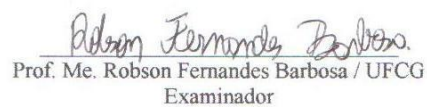 Robson Fernandes Barbosa.
Prof. Me. Robson Fernandes Barbosa / UFCG
Examinador